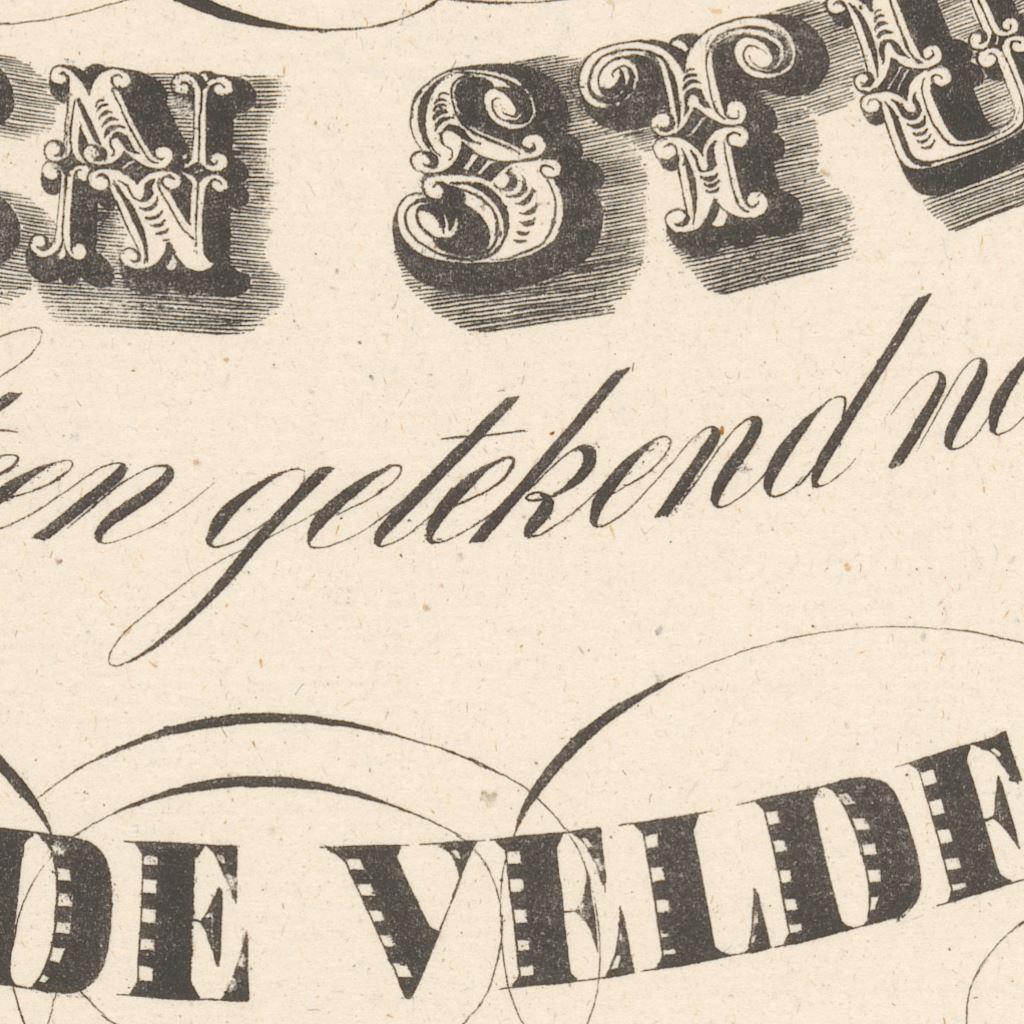 EN STE
een getekend na
DE VELDE